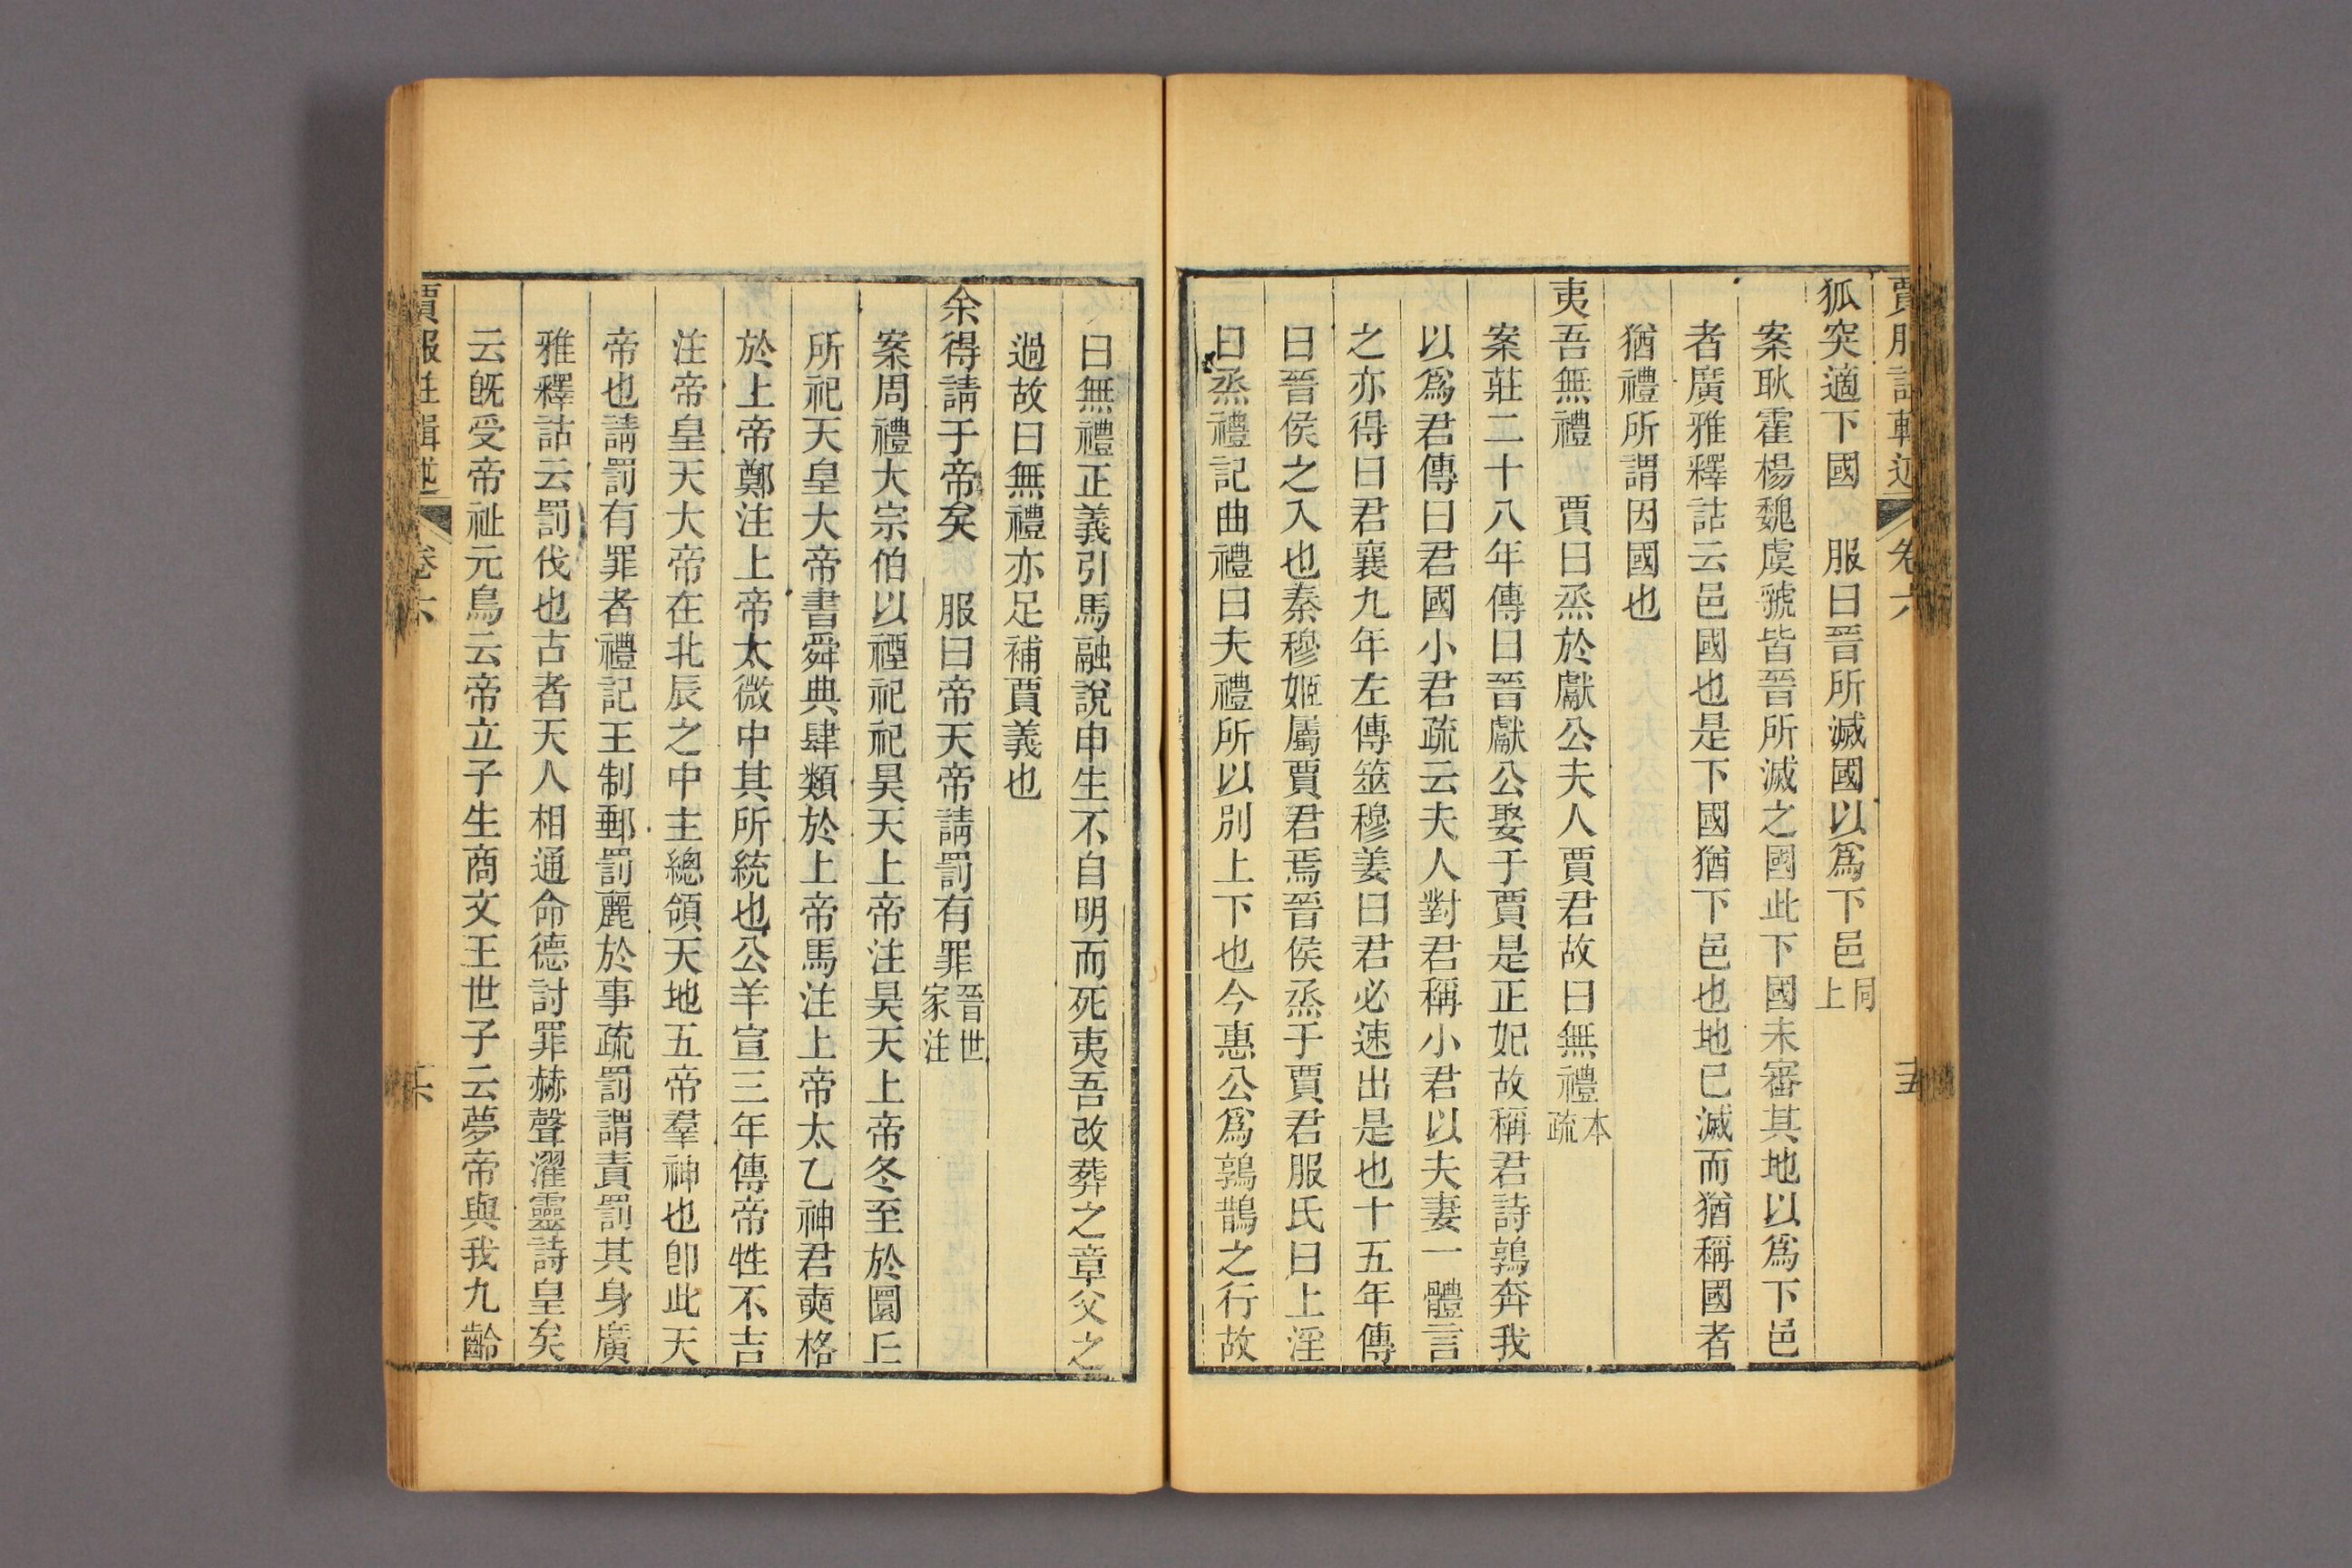 賈服註輯述 卷六 十五
狐突適下國 服曰晉所滅國以爲下邑同上
案耿霍楊魏虞虢皆晉所滅之國此下國未審其地以爲下邑
者廣雅釋詁云邑國也是下國猶下邑也地已滅而猶稱國者
猶禮所謂因國也
夷吾無禮 賈曰烝於獻公夫人賈君故曰無禮本疏
案莊二十八年傳曰晉獻公娶于賈是正妃故稱君詩鶉奔我
以爲君傳曰君國小君疏云夫人對君稱小君以夫妻一體言
之亦得曰君襄九年左傳筮穆姜曰君必速出是也十五年傳
曰晉侯之入也秦穆姬屬賈君焉晉侯烝于賈君服氏曰上淫
曰烝禮記曲禮曰夫禮所以別上下也今惠公爲鶉鵲之行故
曰無禮正義引馬融說申生不自明而死夷吾改葬之章父之
過故曰無禮亦足補賈義也
余得請于帝矣 服曰帝天帝請罰有罪晉世家注
案周禮大宗伯以禋祀祀昊天上帝注昊天上帝冬至於圜丘
所祀天皇大帝書舜典肆類於上帝馬注上帝太乙神君奭格
於上帝鄭注上帝太微中其所統也公羊宣三年傳帝牲不吉
注帝皇天大帝在北辰之中主總領天地五帝羣神也卽此天
帝也請罰有罪者禮記王制郵罰麗於事疏罰謂責罰其身廣
雅釋詁云罰伐也古者天人相通命德討罪赫聲濯靈詩皇矣
云旣受帝祉元鳥云帝立子生商文王世子云夢帝與我九齡
賈服註輯述 卷六 十六